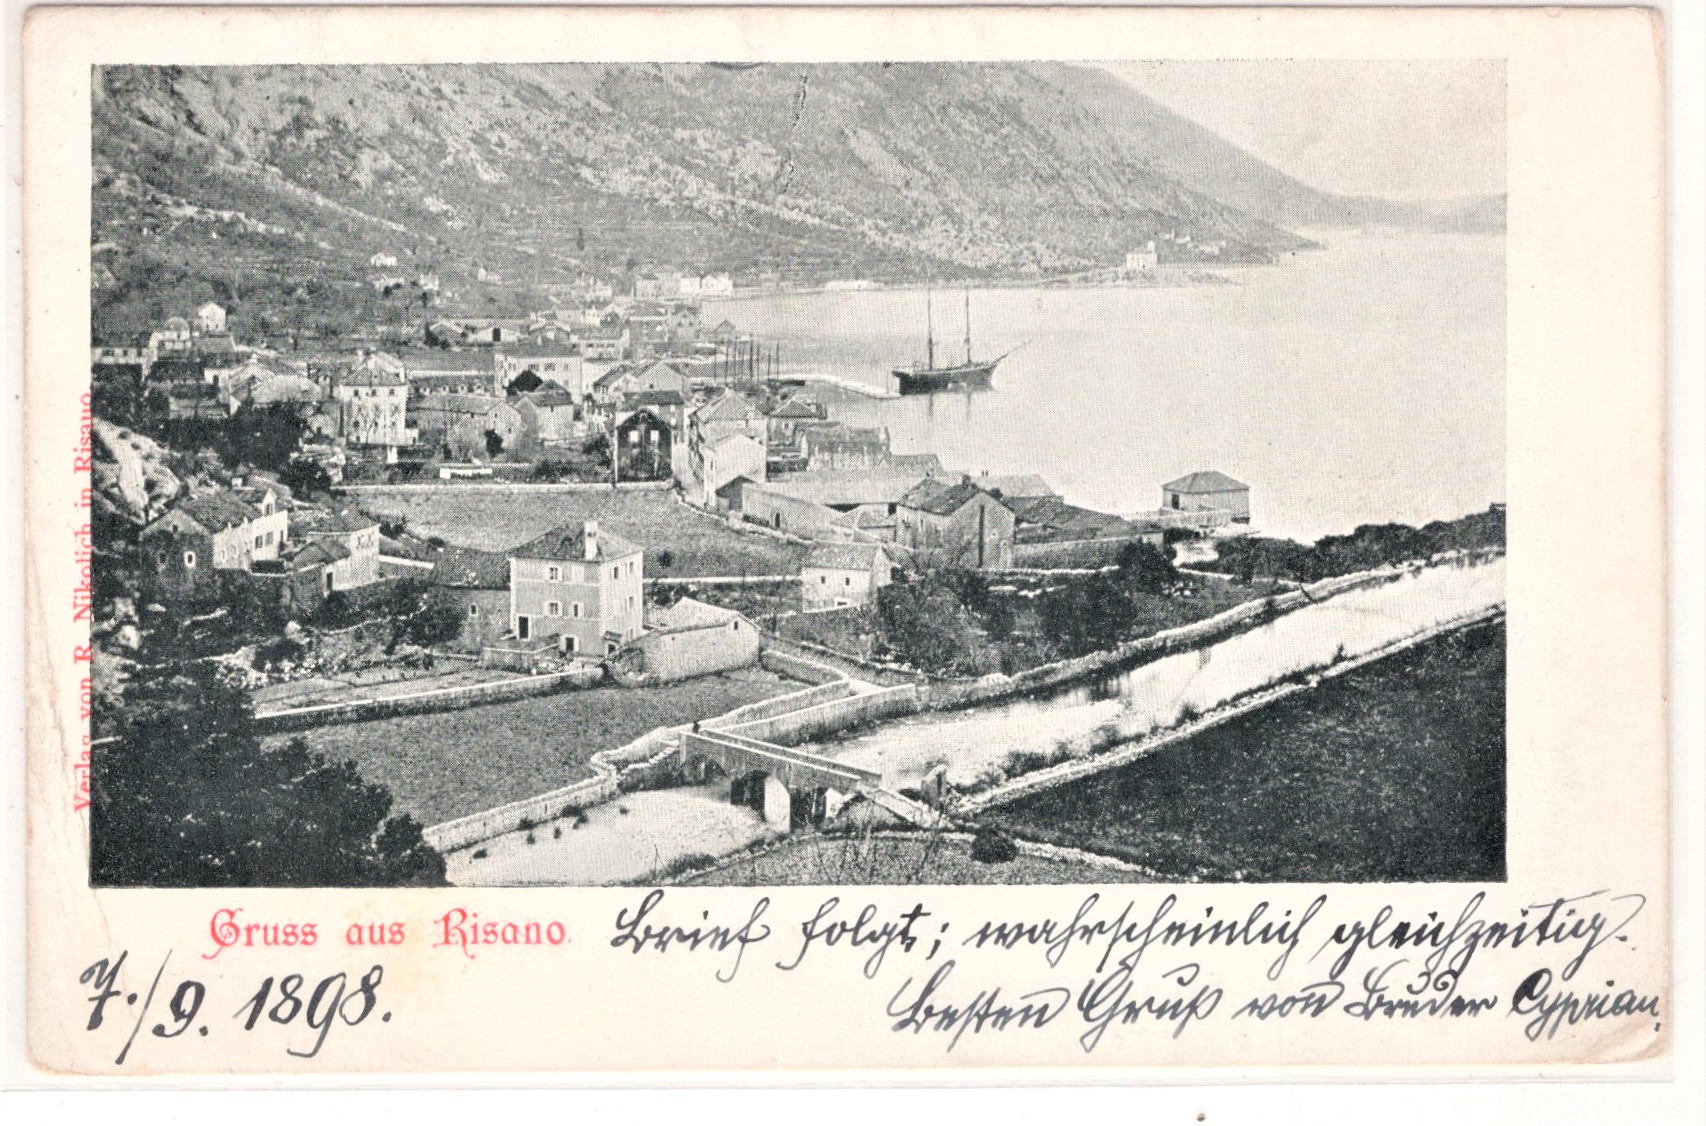 Verlag von R. Nikolich in Risano
Gruss aus Risano.
Brief folgt; wahrscheinlich gleichzeitig.
7./9. 1898.
Besten Gruß von Bruder Cyprian.